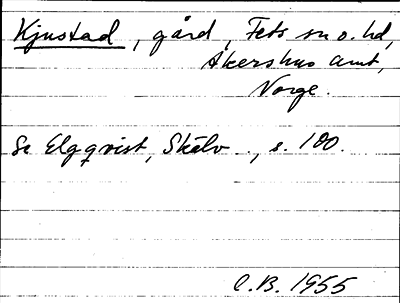 Kjustad, gård, Fets sn o. hd,
Akershus amt,
Norge.
Se Elgqvist, Skälv..., s. 100.
C.B. 1955